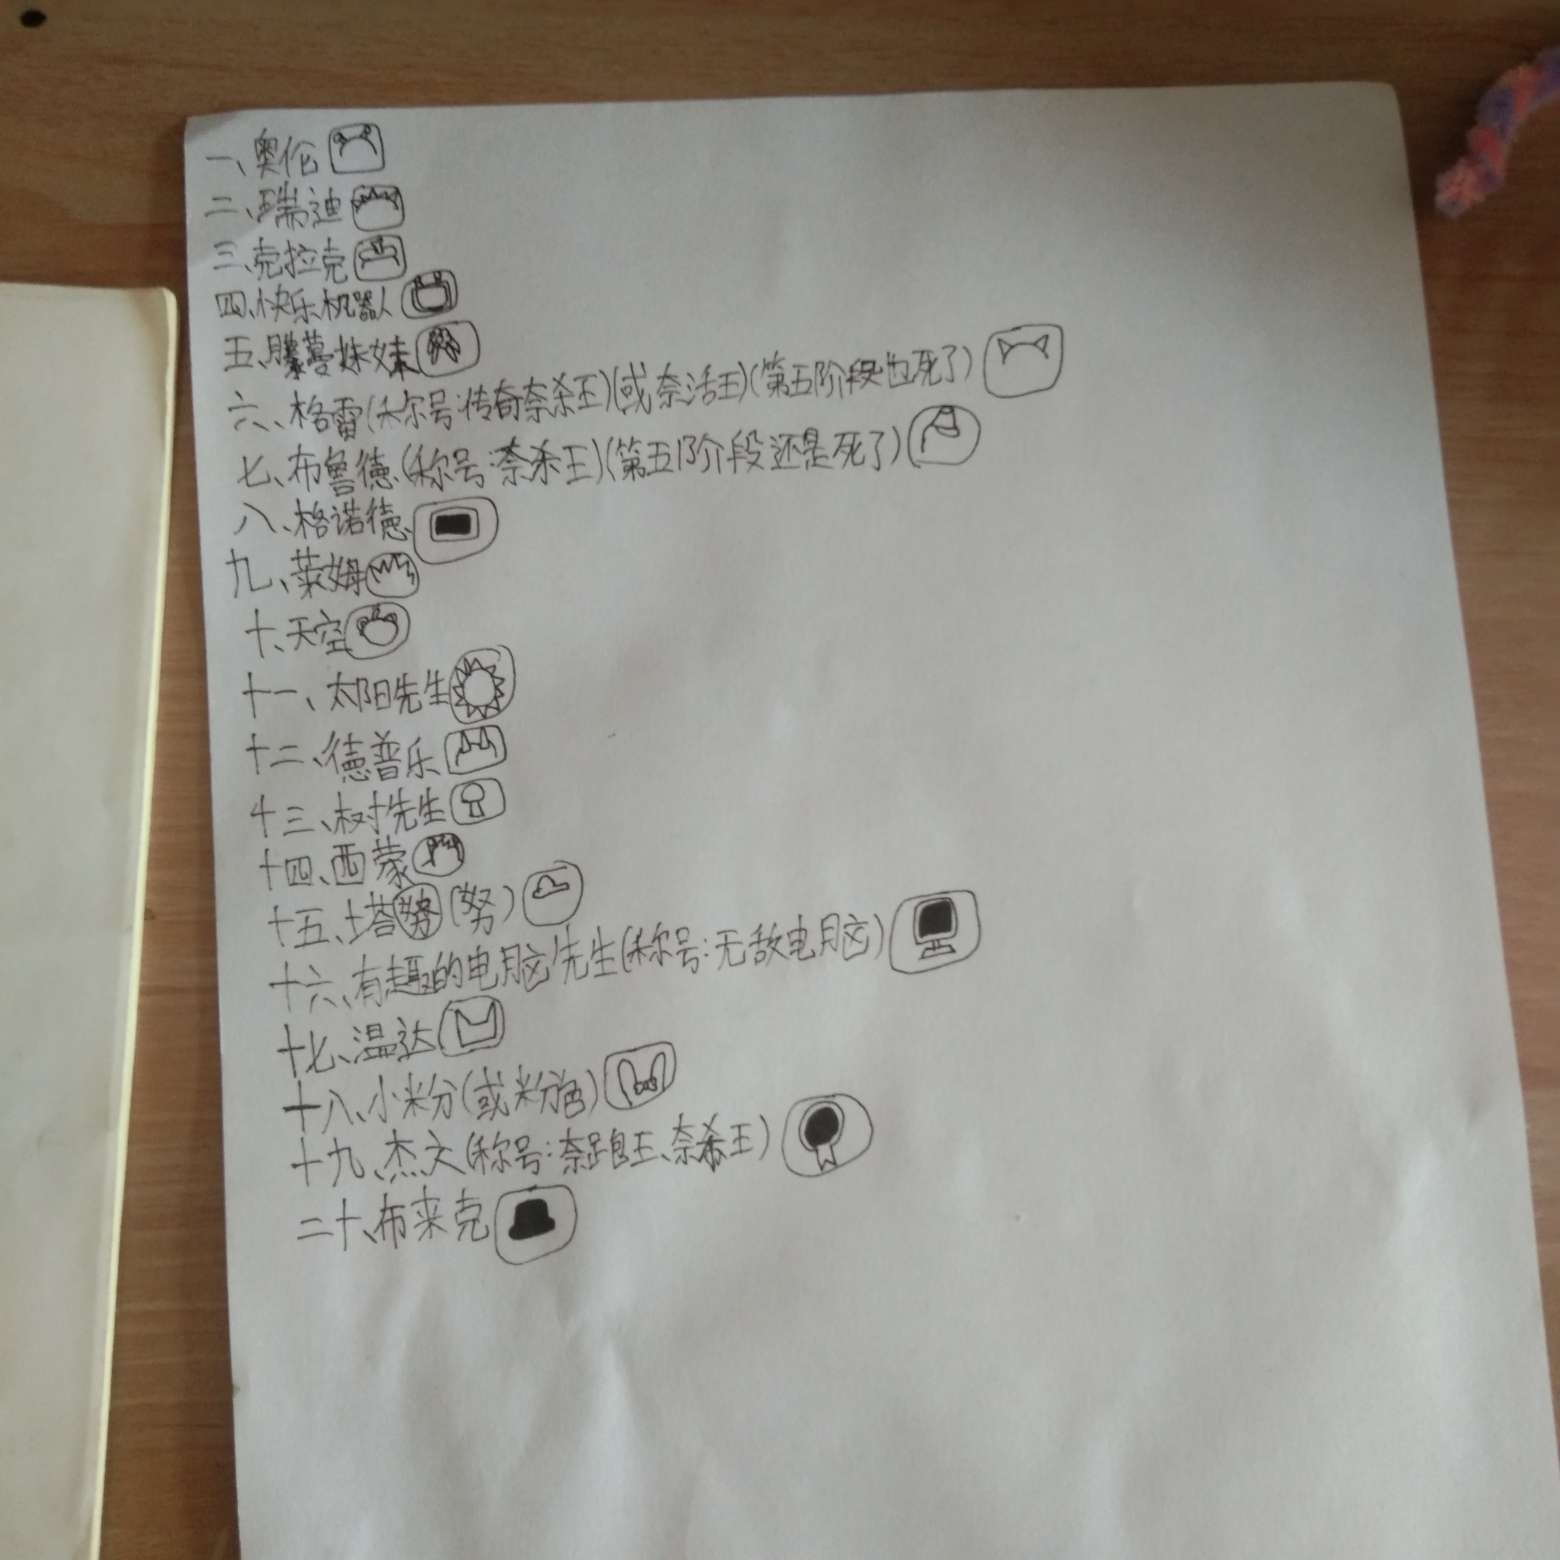 一、奥伦
二、瑞迪
三、克拉克
四、快乐机器人
五、藤蔓妹妹
六、格雷(称号:传奇奈杀王)(或奈活王)(第五阶段也死了)
七、布鲁德(称号:奈杀王)(第五阶段还是死了)
八、格诺德
九、莱姆
十、天空
十一、太阳先生
十二、德普乐
十三、树先生
十四、西蒙
十五、塔努(努)
十六、有趣的电脑先生(称号:无敌电脑)
十七、温达
十八、小粉(或粉色)
十九、杰文(称号:奈跟王、奈希王)
二十、布来克